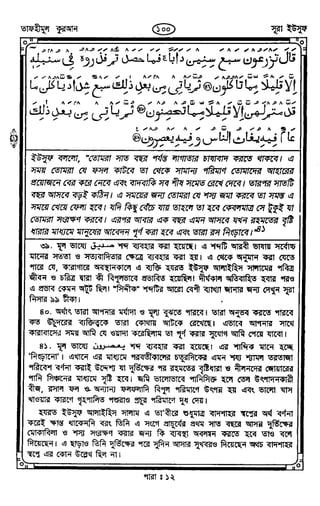 তাফহীমুল কুরআন
১০০
সূরা ইউসুফ
قَالَ تَزْرَعُونَ سَبْعَ سِنِينَ دَأَبًا ۚ فَمَا حَصَدْتُمْ فَذَرُوهُ فِي سُنْبُلِهِ
إِلَّا قَلِيلًا مِمَّا تَأْكُلُونَ ۝ ثُمَّ يَأْتِي مِنْ بَعْدِ ذَٰلِكَ سَبْعٌ شِدَادٌ يَأْكُلْنَ مَا
قَدَّمْتُمْ لَهُنَّ إِلَّا قَلِيلًا مِمَّا تُحْصِنُونَ ۝ ثُمَّ يَأْتِي مِنْ بَعْدِ ذَٰلِكَ
عَامٌ فِيهِ يُغَاثُ النَّاسُ وَفِيهِ يَعْصِرُونَ ۝
ইউসুফ বললো, "তোমরা সাত বছর পর্যন্ত লাগাতার চাষাবাদ করতে থাকবে। এ
সময় তোমরা যে ফসল কাটবে তা থেকে সামান্য পরিমাণ তোমাদের আহারের
প্রয়োজনে বের করে নেবে এবং বাদবাকি সব শীষ সমেত রেখে দেবে। তারপর সাতটি
বছর আসবে বড়ই কঠিন। এ সময়ের জন্য তোমরা যে শস্য জমা করবে তা সমস্ত এ
সময়ে খেয়ে ফেলা হবে। যদি কিছু বেঁচে যায় তাহলে তা হবে কেবলমাত্র সেটুকুই যা
তোমরা সংরক্ষণ করবে। এরপর আবার এক বছর এমন আসবে যখন রহমতের বৃষ্টি
ধারার মাধ্যমে মানুষের আবেদন পূর্ণ করা হবে এবং তারা রস নিংড়াবে।"৪১
৩৯. মূলে صديق শব্দ ব্যবহার করা হয়েছে। এ শব্দটি আরবী ভাষায় সর্বোচ্চ
মানের সততা ও সত্যবাদিতার ক্ষেত্রে ব্যবহার করা হয়। এ থেকে অনুমান করা যেতে
পারে যে, কারাগারে অবস্থানকালে এ ব্যক্তি হযরত ইউসুফ আলাইহিস সালামের পবিত্র
জীবন ও চরিত্র দ্বারা কী বিপুলভাবে প্রভাবিত হয়েছিল। দীর্ঘকাল অতিবাহিত হবার পরও
এ প্রভাব কেমন অটুট ছিল। "সিদ্দীক" শব্দটির আরো বেশী ব্যাখ্যা জানার জন্য দেখুন সূরা
নিসার ৯৯ টীকা।
৪০. অর্থাৎ তারা আপনার মর্যাদা ও মূল্য বুঝতে পারবে। তারা অনুভব করতে পারবে
কত উঁচুদরের ব্যক্তিত্বকে তারা কোথায় আটকে রেখেছে। এভাবে আপনার সাথে
কারাবাসের সময় আমি যে ওয়াদা করেছিলাম তা পূর্ণ করার সুযোগ আমি পেয়ে যাবো।
৪১. মূলে يعصرون শব্দ ব্যবহার করা হয়েছে। এর শাব্দিক মানে হচ্ছে
'নিংড়ানো'। এখানে এর মাধ্যমে পরবর্তীকালের চতুরদিকের এমন শস্য শ্যামল তরতাজা
পরিবেশ বর্ণনা করাই উদ্দেশ্য যা দুর্ভিক্ষের পর রহমতের বৃষ্টিধারা ও নীলনদের জোয়ারের
পানি সিঞ্চনের মাধ্যমে সৃষ্টি হবে। জমি ভালোভাবে পানিসিক্ত হলে তেল উৎপাদনকারী
বীজ, রসাল ফল ও অন্যান্য ফলফলাদি বিপুল পরিমাণে উৎপন্ন হয় এবং ভালো ঘাস
খাওয়ার কারণে গৃহপালিত পশুরাও প্রচুর পরিমাণে দুধ দেয়।
হযরত ইউসুফ আলাইহিস সালাম এ তা'বীরে শুধুমাত্র বাদশাহর স্বপ্নের অর্থ বর্ণনা
করেই ক্ষান্ত থাকেননি বরং তিনি এ সংগে প্রাচুর্যের প্রথম সাত বছরে আসন্ন দুর্ভিক্ষের
মোকাবিলা ও শস্য সংরক্ষণ করার জন্য কি ব্যবস্থা অবলম্বন করতে হবে তাও বলে
দিয়েছেন। এ ছাড়াও তিনি দুর্ভিক্ষের পরে সুদিন আসার সুখবরও দিয়েছেন অথচ বাদশাহর
স্বপ্নে এর কোন উল্লেখ ছিল না।
পারা : ১২